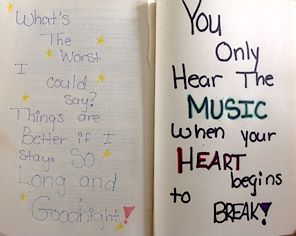 What's
The
Worst
I could
say?
Things are
Better if I
stay. So
Long and
Goodnight!
You
Only
Hear The
MUSIC
when your
HEART
begins
to BREAK!